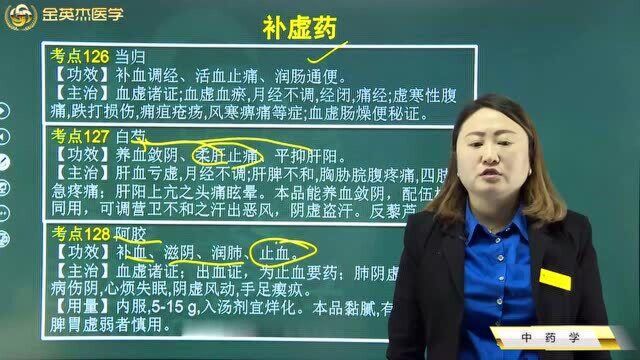 金英杰医学
补虚药
考点126 当归
【功效】补血调经、活血止痛、润肠通便。
【主治】血虚诸证;血虚血瘀,月经不调,经闭,痛经;虚寒性腹
痛,跌打损伤,痈疽疮疡,风寒痹痛等症;血虚肠燥便秘证。
考点127 白芍
【功效】养血敛阴、柔肝止痛、平抑肝阳。
【主治】肝血亏虚,月经不调;肝脾不和,胸胁脘腹疼痛,四肢
急疼痛;肝阳上亢之头痛眩晕。本品能养血敛阴,配伍
同用,可调营卫不和之汗出恶风,阴虚盗汗。反藜芦
考点128 阿胶
【功效】补血、滋阴、润肺、止血。
【主治】血虚诸证;出血证,为止血要药;肺阴虚
病伤阴,心烦失眠,阴虚风动,手足瘈疭。
【用量】内服,5-15 g,入汤剂宜烊化。本品黏腻,有
脾胃虚弱者慎用。
中药学